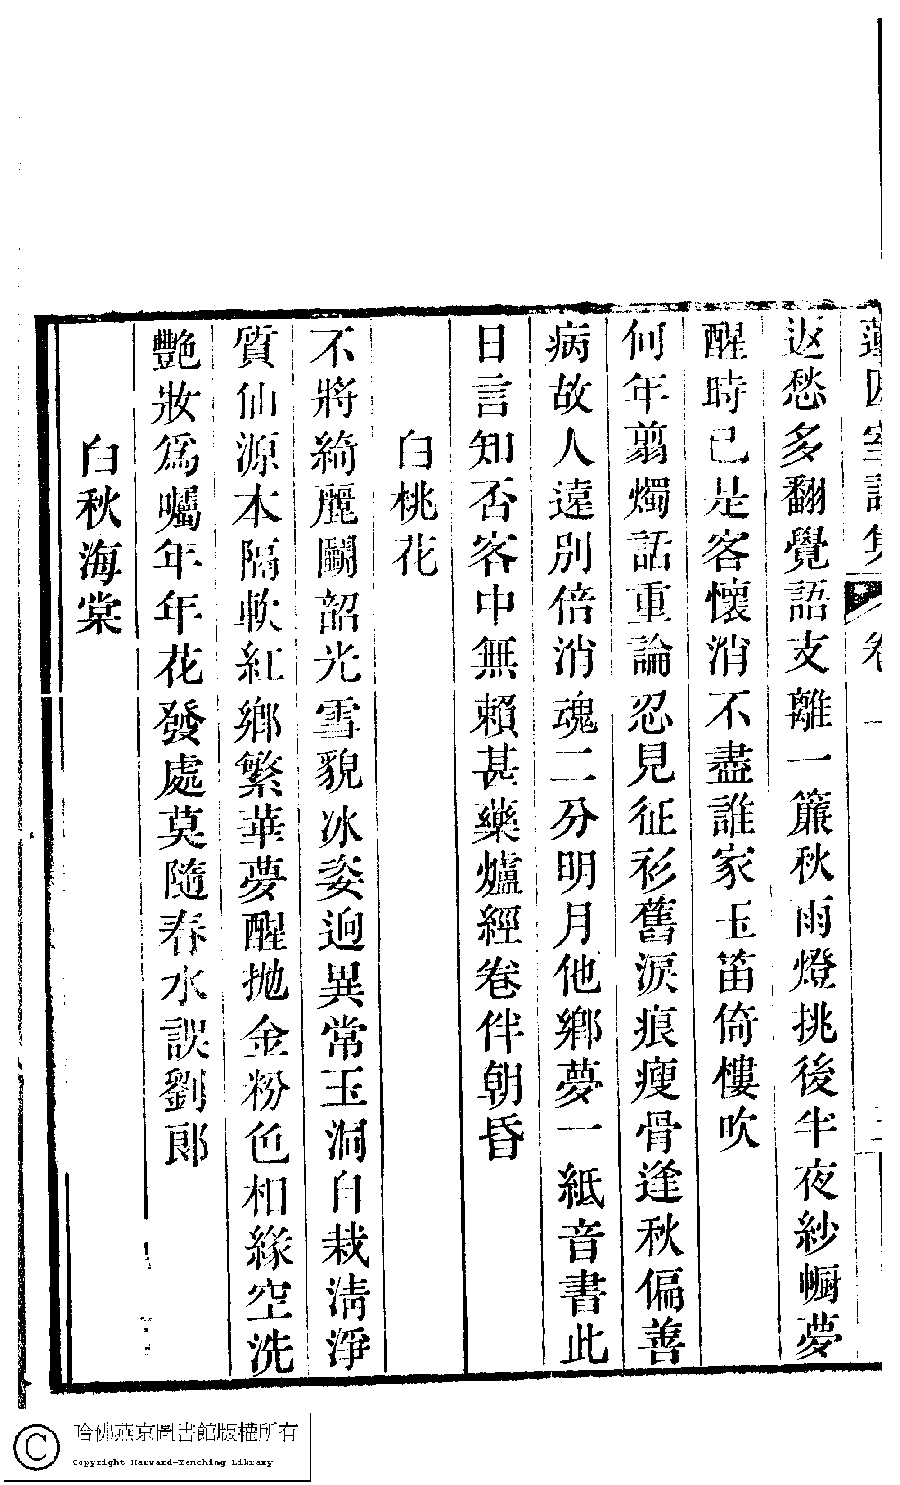 蓮因室詩集 卷一
返愁多翻覺語支離一簾秋雨燈挑後半夜紗幮夢
醒時已是客懷消不盡誰家玉笛倚樓吹
何年翦燭話重論忍見征衫舊淚痕瘦骨逢秋偏善
病故人遠別倍消魂二分明月他鄉夢一紙音書此
日言知否客中無賴甚藥爐經卷伴朝昏
白桃花
不將綺麗鬭韶光雪貌冰姿迥異常玉洞自栽淸淨
質仙源本隔軟紅鄉繁華夢醒拋金粉色相緣空洗
艷妝爲囑年年花發處莫隨春水誤劉郞
白秋海棠
哈佛燕京圖書館版權所有
Copyright Harvard-Yenching Library